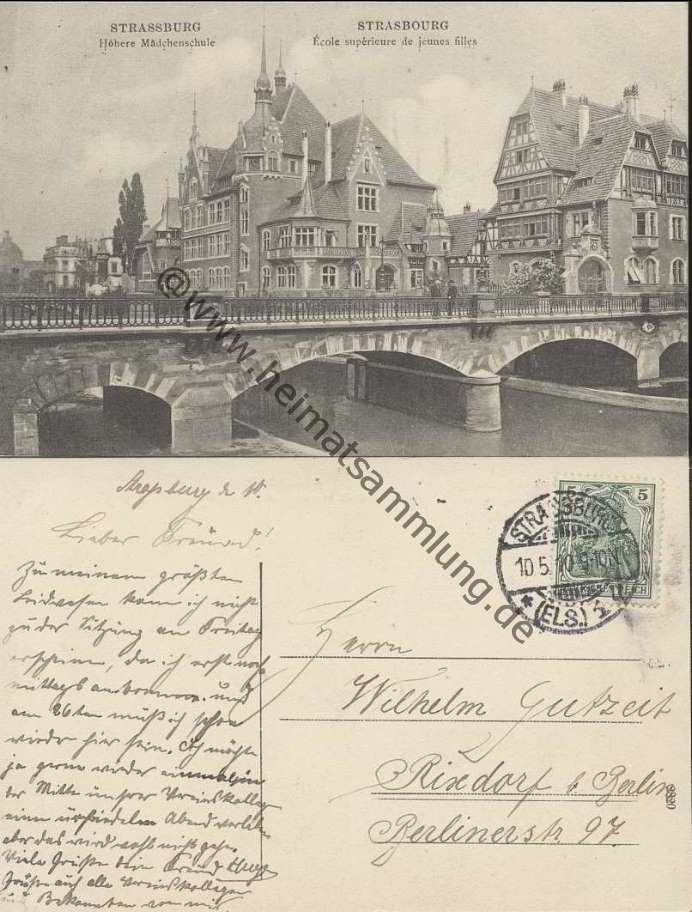 STRASSBURG
Höhere Mädchenschule
STRASBOURG
École supérieure de jeunes filles
@www.heimatsammlung.de
Strassburg d. 10.
Lieber Freund!
Zu meinem größten
Leidwesen kann ich nicht
zu der Sitzung am Freitag
erscheinen, da ich erst nach
mittags ankomme und
am 26ten muß ich schon
wieder hier sein. Ich möchte
ja gerne wieder einmal in
der Mitte unsrer Vereinskollegen
einen urfidelen Abend verleben
aber das wird wohl nicht gehn.
Viele Grüße dein Freund
Grüße auch alle Vereinskollegen
und Bekannten von mir
STRASSBURG
10.5.10.
* (ELS.)
5 5
Herrn
Wilhelm Gutzeit
Rixdorf b. Berlin
Berlinerstr 97.